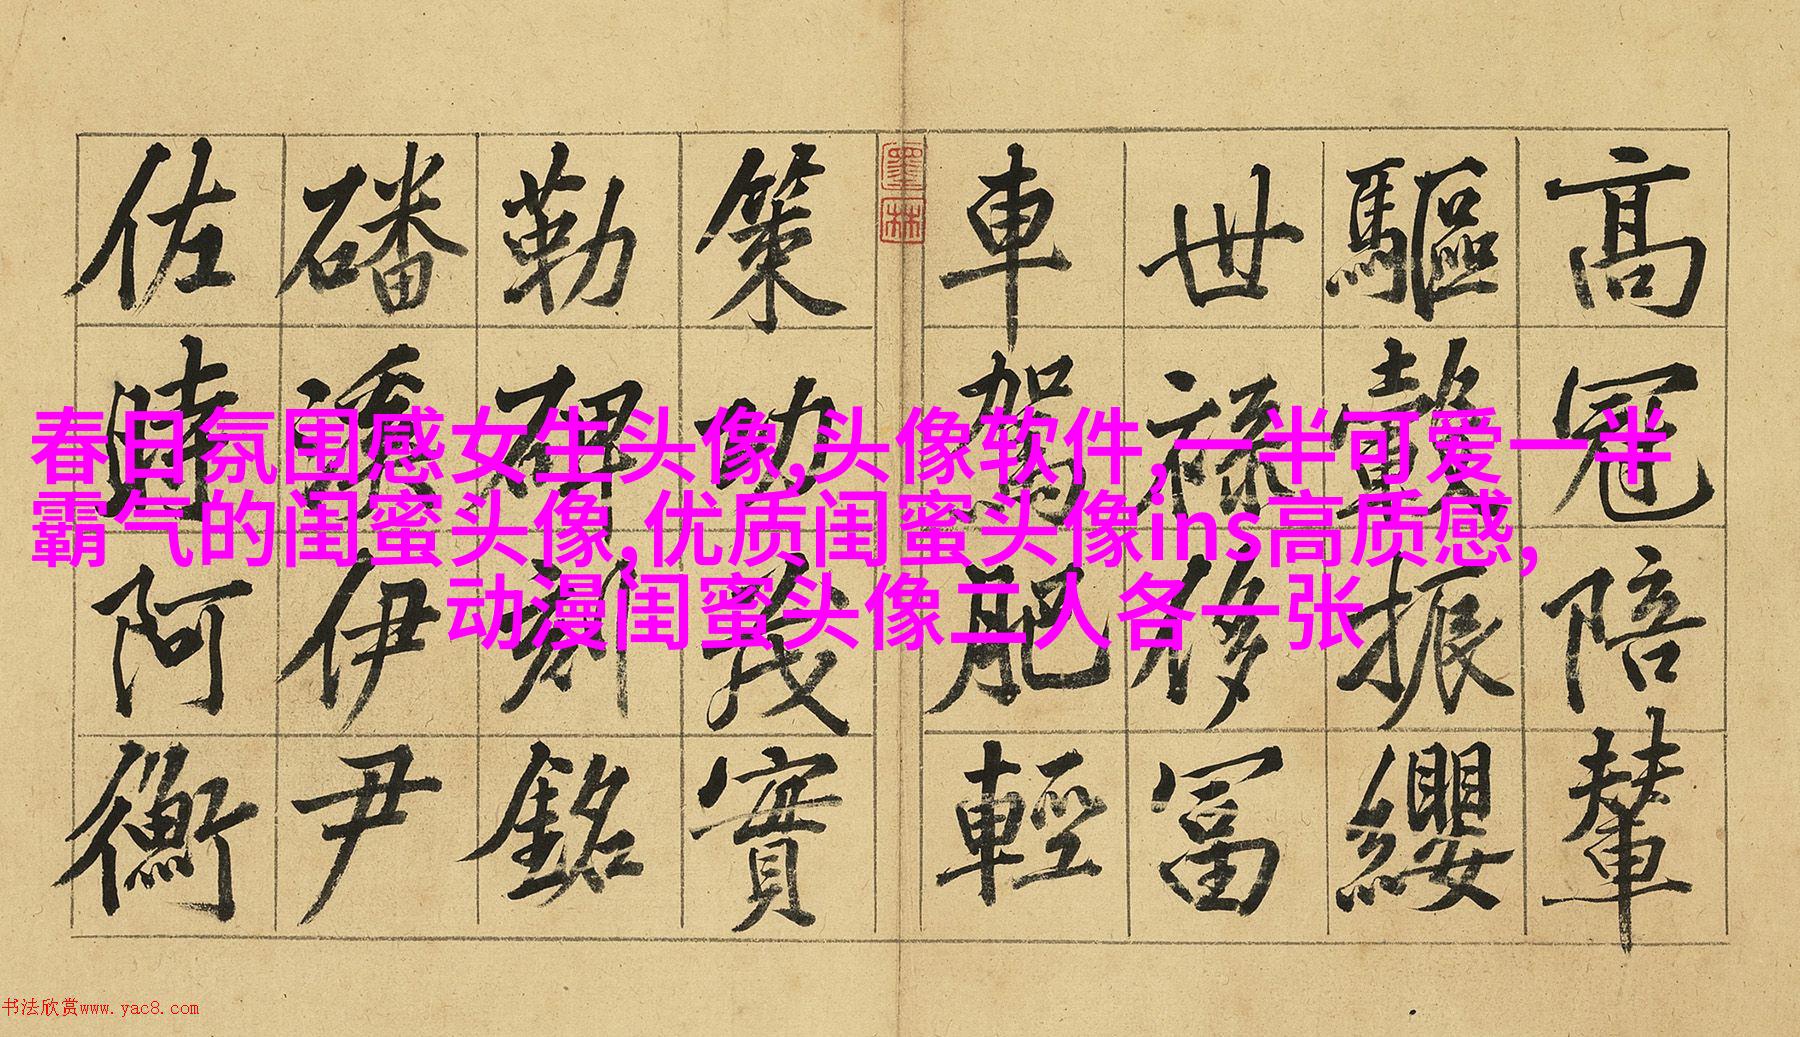 高冠陪輦
驅轂振纓
世禄侈富
車駕肥輕
墨林
策功茂實
勒碑刻銘
磻溪伊尹
佐時阿衡
春日氛围感女生头像,头像软件,一半可爱一半
霸气的闺蜜头像,优质闺蜜头像ins高质感,
动漫闺蜜头像二人各一张
书法欣赏www.yac8.com